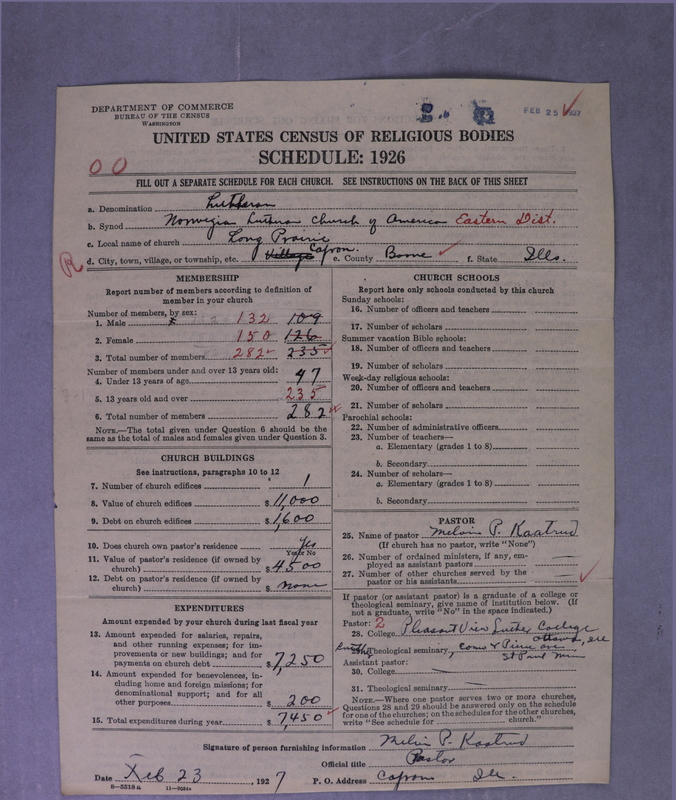 DEPARTMENT OF COMMERCE
BUREAU OF THE CENSUS
WASHINGTON
FEB 25 1927
UNITED STATES CENSUS OF RELIGIOUS BODIES
SCHEDULE: 1926
00
FILL OUT A SEPARATE SCHEDULE FOR EACH CHURCH. SEE INSTRUCTIONS ON THE BACK OF THIS SHEET
a. Denomination Lutheran
b. Synod Norwegian Lutheran Church of America Eastern Dist.
c. Local name of church Long Prairie
d. City, town, village, or township, etc. Village Capron. e. County Boone f. State Ills.
R
MEMBERSHIP
Report number of members according to definition of
member in your church
Number of members, by sex:
1. Male 132 109
2. Female 150 126
3. Total number of members 282 235
Number of members under and over 13 years old:
4. Under 13 years of age 47
5. 13 years old and over 235
6. Total number of members 282
NOTE.—The total given under Question 6 should be the
same as the total of males and females given under Question 3.
CHURCH BUILDINGS
See instructions, paragraphs 10 to 12
7. Number of church edifices 1
8. Value of church edifices $11,000
9. Debt on church edifices $1,600
10. Does church own pastor's residence Yes
Yes or No
11. Value of pastor's residence (if owned by
church) $4500
12. Debt on pastor's residence (if owned by
church) $ none
EXPENDITURES
Amount expended by your church during last fiscal year
13. Amount expended for salaries, repairs,
and other running expenses; for im-
provements or new buildings; and for
payments on church debt $7,250
14. Amount expended for benevolences, in-
cluding home and foreign missions; for
denominational support; and for all
other purposes $200
15. Total expenditures during year $7450
CHURCH SCHOOLS
Report here only schools conducted by this church
Sunday schools:
16. Number of officers and teachers
17. Number of scholars
Summer vacation Bible schools:
18. Number of officers and teachers
19. Number of scholars
Week-day religious schools:
20. Number of officers and teachers
21. Number of scholars
Parochial schools:
22. Number of administrative officers
23. Number of teachers—
a. Elementary (grades 1 to 8)
b. Secondary
24. Number of scholars—
a. Elementary (grades 1 to 8)
b. Secondary
PASTOR
25. Name of pastor Melvin P. Kaatrud
(If church has no pastor, write "None")
26. Number of ordained ministers, if any, em-
ployed as assistant pastors
27. Number of other churches served by the
pastor or his assistants
If pastor (or assistant pastor) is a graduate of a college or
theological seminary, give name of institution below. (If
not a graduate, write "No" in the space indicated.)
Pastor: 2
28. College Pleasant View Luther College
Ottawa, Ill
29. Theological seminary, Como & Pierce ave
St Paul Minn
Assistant pastor:
30. College
31. Theological seminary
NOTE.—Where one pastor serves two or more churches,
Questions 28 and 29 should be answered only on the schedule
for one of the churches; on the schedules for the other churches,
write "See schedule for church."
Signature of person furnishing information Melvin P. Kaatrud
Official title Pastor
Date Feb 23, 1927 P. O. Address Capron Ill.